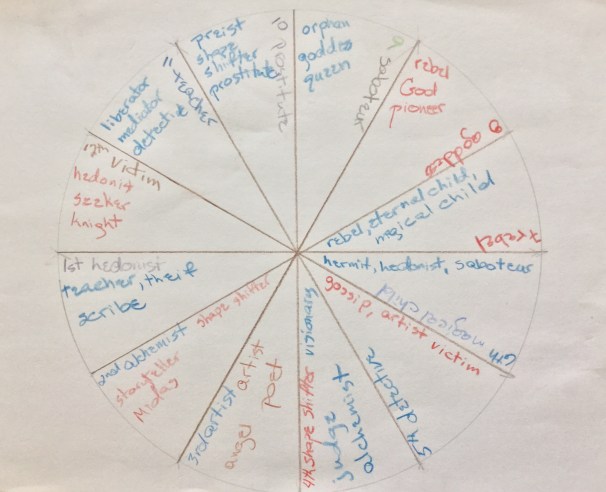 orphan
goddess
queen
9 saboteur
rebel
God
pioneer
8 goddess
rebel, eternal child,
magical child
7 rebel
hermit, hedonist, saboteur
6th magical child
gossip, artist victim
5th detective
visionary
alchemist
judge
4th shape shifter
artist
poet
angel
3rd artist
shape shifter
storyteller
Midas
2nd alchemist
1st hedonist
teacher, theif
scribe
12th victim
hedonist
seeker
knight
liberator
mediator
detective
11 teacher
preist
shape
shifter
prostitute
10 prostitute